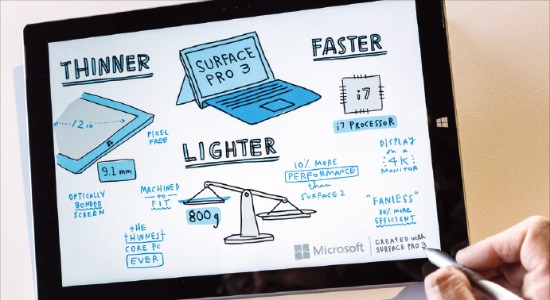 THINNER
12 in
PIXEL
FREE
9.1 mm
OPTICALLY
BONDED
SCREEN
MACHINED
to
FIT
the
THINNEST
CORE PC
EVER
SURFACE
PRO 3
LIGHTER
800g
10% MORE
PERFORMANCE
than
SURFACE 2
FASTER
i7
i7 PROCESSOR
DISPLAY
on a
4K
MONITOR
"FANLESS"
30% more
EFFICIENT
Microsoft
CREATED with
SURFACE PRO 3